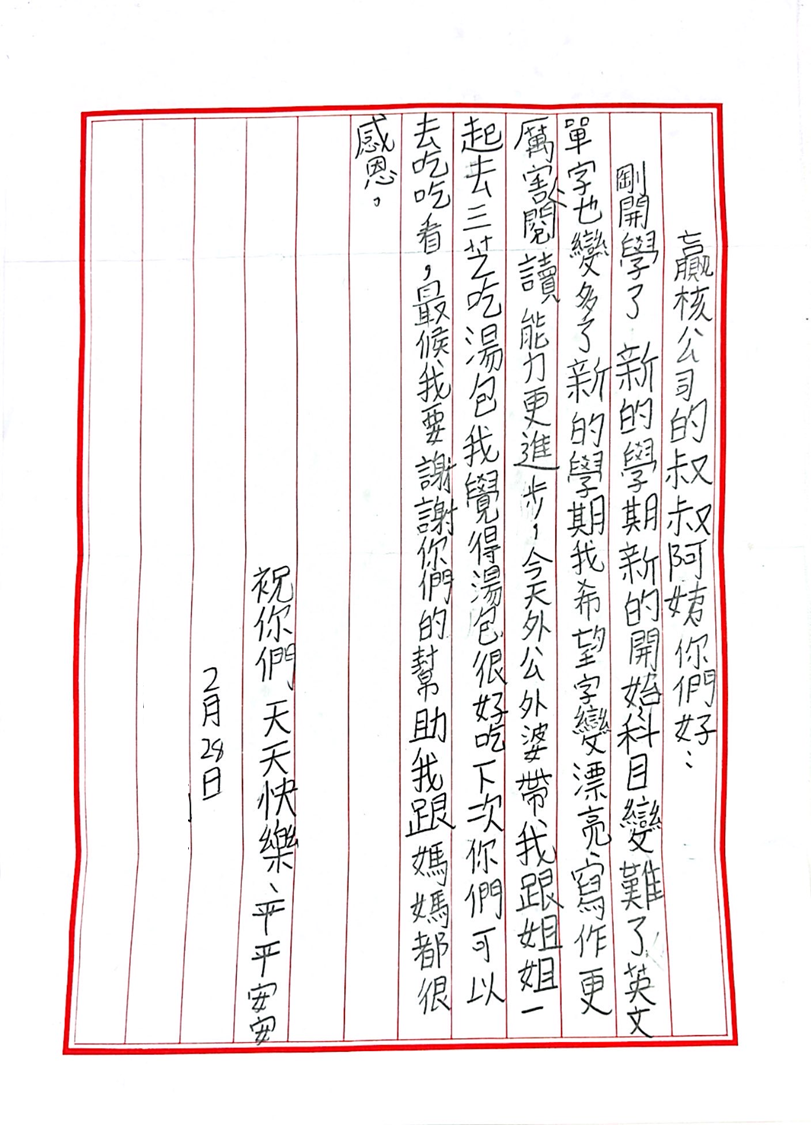 贏核公司的叔叔阿姨你們好：
剛開學了新的學期新的開始、科目變難了英文
單字也變多了新的學期我希望字變漂亮、寫作更
厲害、閱讀能力更進步，今天外公外婆帶、我跟姐姐一
起去三芝吃湯包我覺得湯包很好吃下次你們可以
去吃吃看，最候、我要謝謝你們的幫助我跟媽媽都很
感恩。
祝你們、天天快樂、平平安安
2月28日